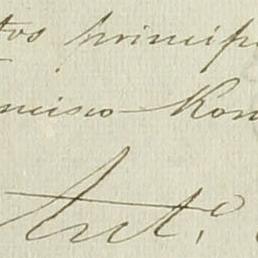 tos princip
ncisco Rom
Ant.º